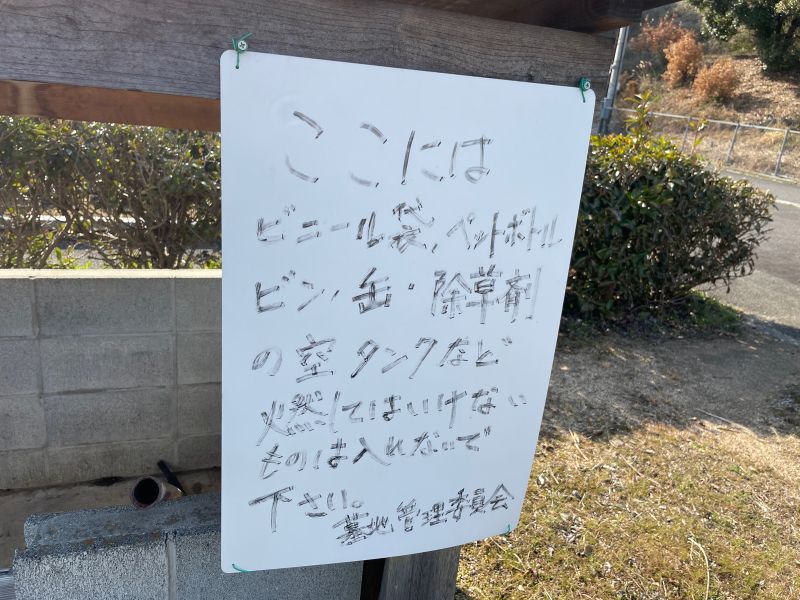 ここには
ビニール袋、ペットボトル
ビン・缶・除草剤
の空タンクなど
燃してはいけない
ものは入れないで
下さい。墓地管理委員会